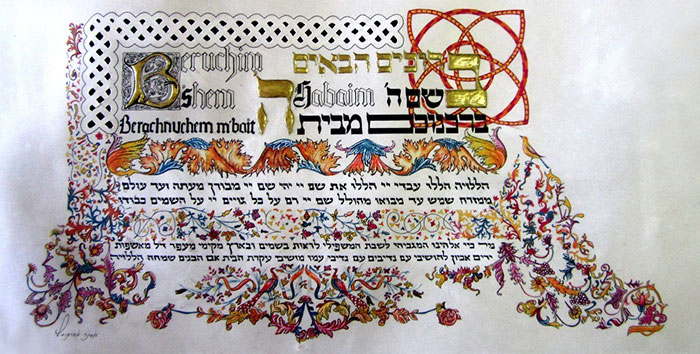 Beruchim ברוכים הבאים
Bshem Habaim בשם ה'
Berachnuchem m'bait ברכנוכם מבית
הללויה הללו עבדי יי הללו את שם יי יהי שם יי מבורך מעתה ועד עולם
ממזרח שמש עד מבואו מהולל שם יי רם על כל גויים יי על השמים כבודו
מי כיי אלהינו המגביהי לשבת המשפילי לראות בשמים ובארץ מקימי מעפר דל מאשפות
ירים אביון להושיבי עם נדיבים עם נדיבי עמו מושיבי עקרת הבית אם הבנים שמחה הללויה